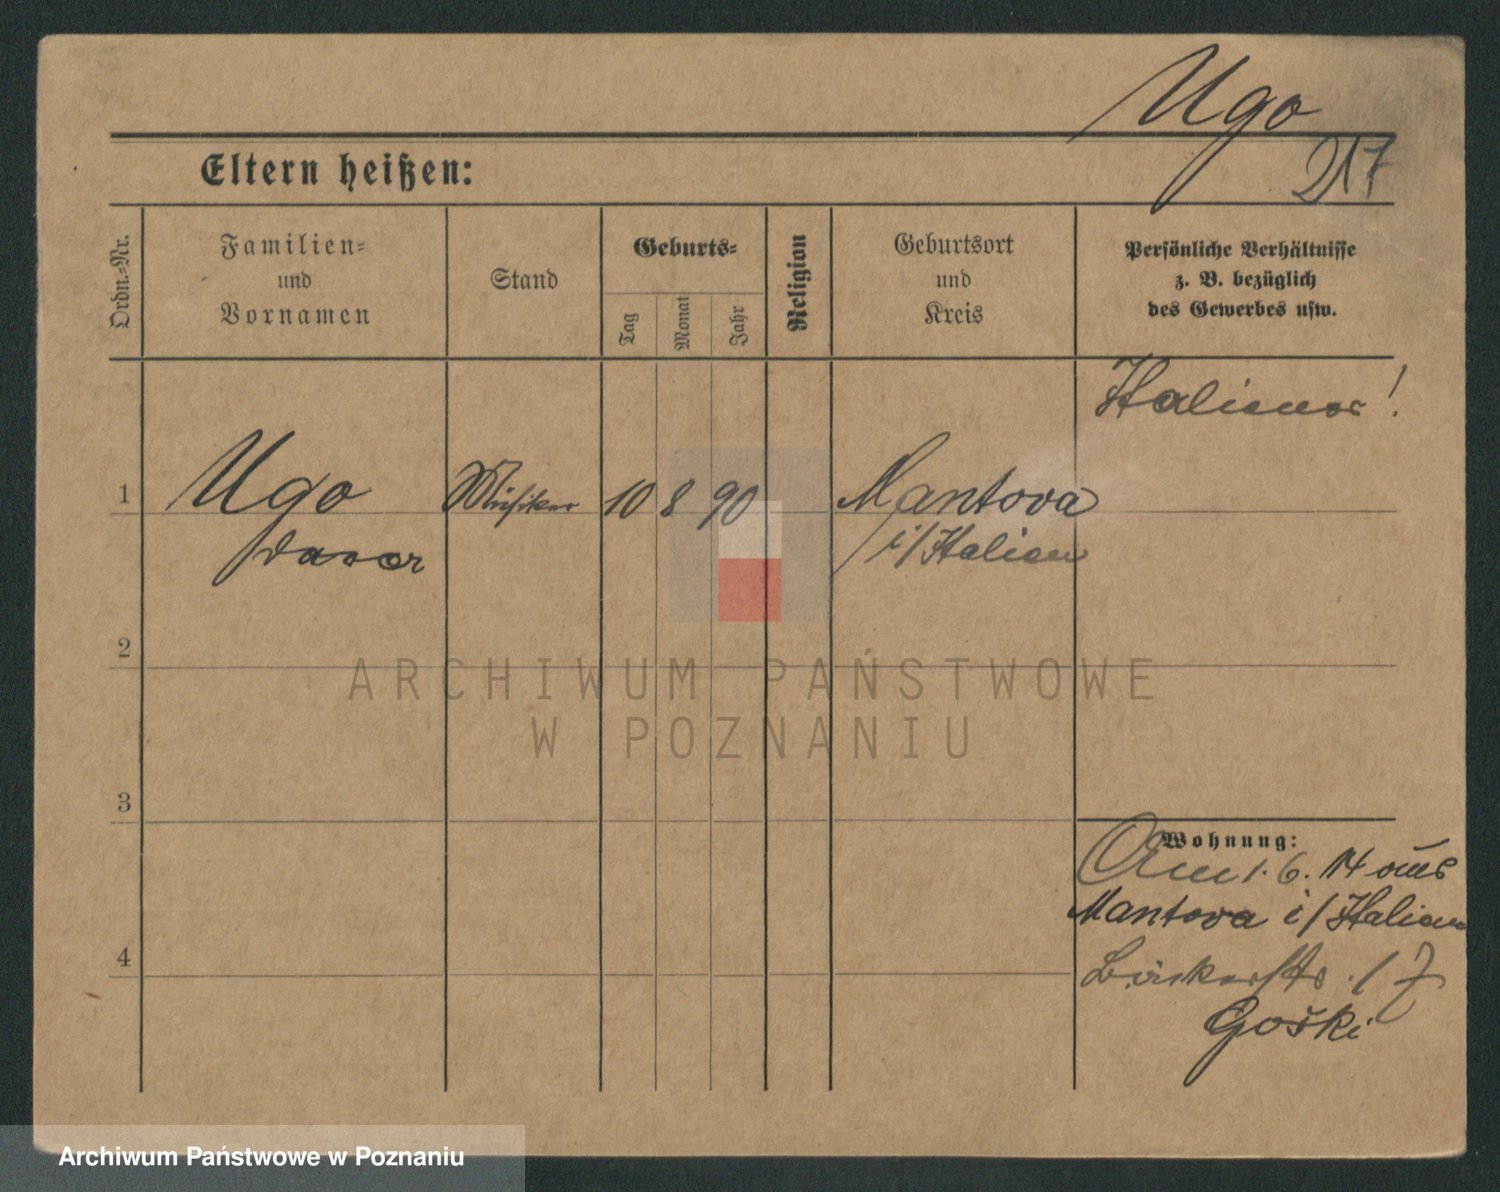 Ugo
217
Eltern heißen:
Ordn.-Nr.
Familien-
und
Vornamen
Stand
Geburts-
Tag
Monat
Jahr
Religion
Geburtsort
und
Kreis
Persönliche Verhältnisse
z. B. bezüglich
des Gewerbes usw.
Italiener!
1 Ugo Musiker 10 8 90 Mantova
i/Italien
2
ARCHIWUM PAŃSTWOWE
W POZNANIU
3
Wohnung:
Am 1. 6. 14 aus
Mantova i/Italien
4
Bäckerstr. 17
Goski
Archiwum Państwowe w Poznaniu